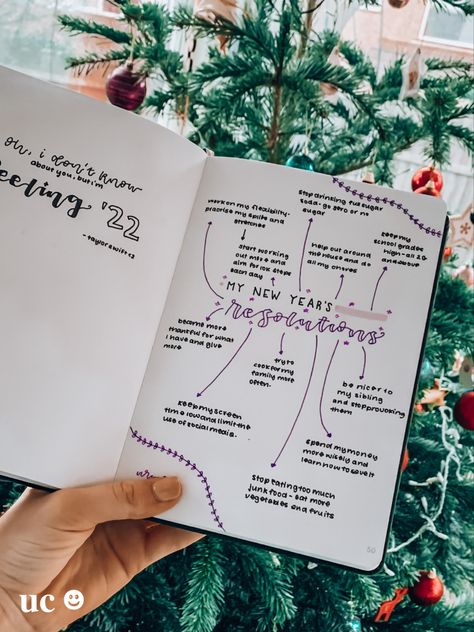 oh, i don't know
about you, but i'm
feeling '22
- taylor swift <3
stop drinking full sugar
soda - go zero or no
sugar
work on my flexibility -
practise my splits and
stretches
keep my
school grades
high - all
and above
start working
out more and
aim for 10k steps
each day
help out around
the house and do
all my chores
MY NEW YEAR'S
resolutions
become more
thankful for what
I have and give
more
try to
cook for my
family more
often.
be nicer to
my sibling
and stop provoking
them
keep my screen
time low and limit the
use of social media.
spend my money
more wisely and
learn how to save it
stop eating too much
junk food - eat more
vegetables and fruits
50
uc